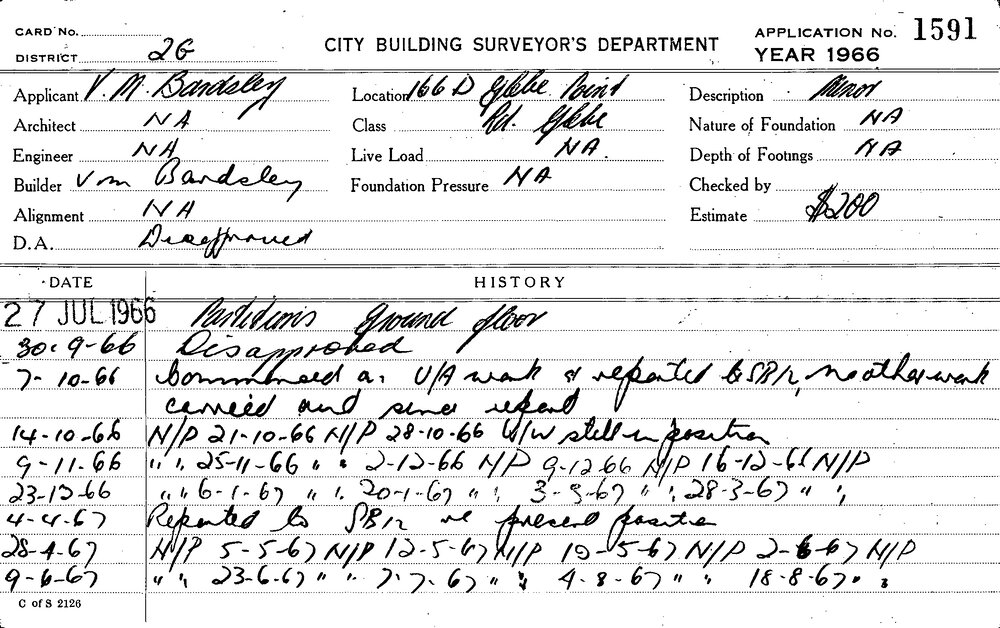 CARD No.
DISTRICT 2G
CITY BUILDING SURVEYOR'S DEPARTMENT
APPLICATION No. 1591
YEAR 1966
Applicant V. M. Bardsley
Location 166 D Glebe Point
Description Minor
Architect NA
Class Rd. Glebe
Nature of Foundation NA
Engineer NA
Live Load NA.
Depth of Footings NA
Builder V M Bardsley
Foundation Pressure NA
Checked by
Alignment NA
Estimate $200
D.A. Disapproved
DATE HISTORY
27 JUL 1966 Partitions ground floor
30-9-66 Disapproved
7-10-66 Commenced as U/A work & reported to SB/r, no other work
carried out since report
14-10-66 N/P 21-10-66 N/P 28-10-66 U/W still in position
9-11-66 " " 25-11-66 " " 2-12-66 N/P 9-12-66 N/P 16-12-66 N/P
23-12-66 " " 6-1-67 " " 20-1-67 " " 3-3-67 " " 28-3-67 " "
4-4-67 Reported to SB/r re present position
28-4-67 N/P 5-5-67 N/P 12-5-67 N/P 19-5-67 N/P 2-6-67 N/P
9-6-67 " " 23-6-67 " " 7-7-67 " " 4-8-67 " " 18-8-67 " "
C of S 2126